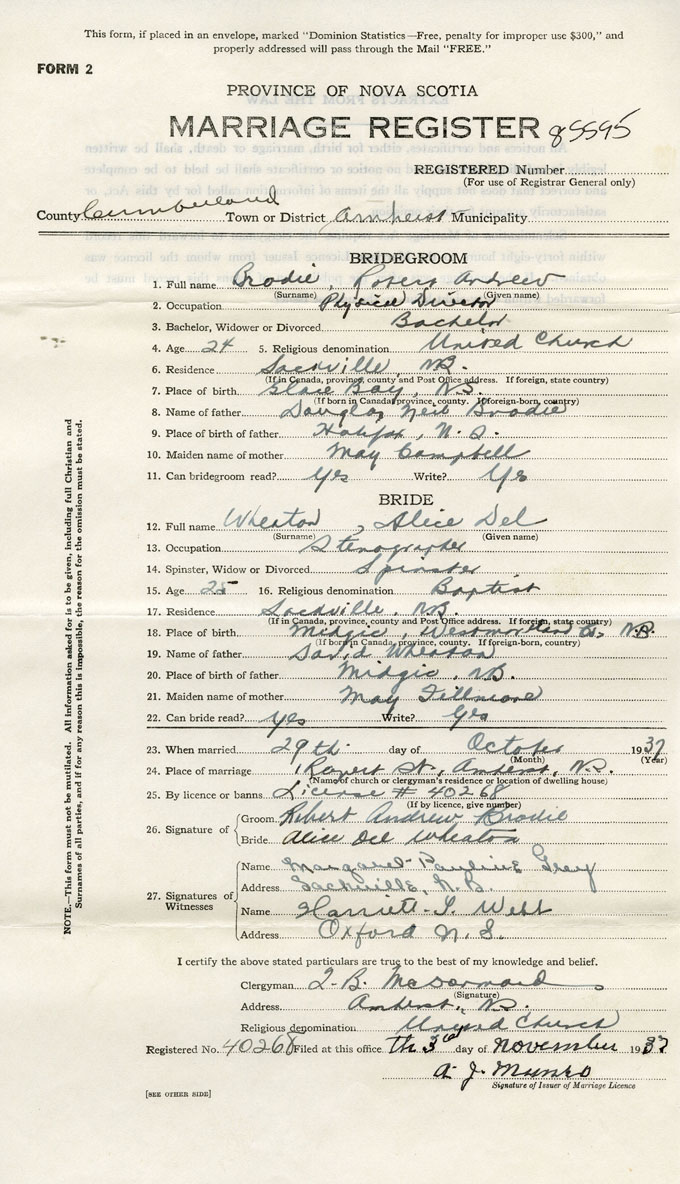 This form, if placed in an envelope, marked "Dominion Statistics—Free, penalty for improper use $300," and
properly addressed will pass through the Mail "FREE."
FORM 2
PROVINCE OF NOVA SCOTIA
MARRIAGE REGISTER 85595
REGISTERED Number
(For use of Registrar General only)
County Cumberland Town or District Amherst Municipality
BRIDEGROOM
1. Full name Brodie, Robert Andrew
(Surname) (Given name)
2. Occupation Physical Director
3. Bachelor, Widower or Divorced Bachelor
4. Age 24 5. Religious denomination United Church
6. Residence Sackville, N.B.
(If in Canada, province, county and Post Office address. If foreign, state country)
7. Place of birth Glace Bay, N.S.
(If born in Canada, province, county. If foreign-born, country)
8. Name of father Douglas Neil Brodie
9. Place of birth of father Halifax, N.S.
10. Maiden name of mother May Campbell
11. Can bridegroom read? Yes Write? Yes
BRIDE
12. Full name Wheaton, Alice Del
(Surname) (Given name)
13. Occupation Stenographer
14. Spinster, Widow or Divorced Spinster
15. Age 25 16. Religious denomination Baptist
17. Residence Sackville, N.B.
(If in Canada, province, county and Post Office address. If foreign, state country)
18. Place of birth Midgic, Westmorland Co. N.B.
(If born in Canada, province, county. If foreign-born, country)
19. Name of father David Wheaton
20. Place of birth of father Midgic, N.B.
21. Maiden name of mother May Fillmore
22. Can bride read? Yes Write? Yes
23. When married 29th. day of October 1937
(Month) (Year)
24. Place of marriage Rupert St., Amherst, N.S.
(Name of church or clergyman's residence or location of dwelling house)
25. By licence or banns License # 40268
(If by licence, give number)
26. Signature of
Groom Robert Andrew Brodie
Bride Alice Del Wheaton
27. Signatures of Witnesses
Name Margaret Pauline Grey
Address Sackville, N.B.
Name Harriett I. Webb
Address Oxford N.S.
I certify the above stated particulars are true to the best of my knowledge and belief.
Clergyman McDormand
(Signature)
Address Amherst, N.S.
Religious denomination United Church
Registered No. 40268 Filed at this office th 3rd day of November 1937
A. J. Munro
Signature of Issuer of Marriage Licence
[SEE OTHER SIDE]
NOTE.—This form must not be mutilated. All information asked for is to be given, including full Christian and
Surnames of all parties, and if for any reason this is impossible, the reason for the omission must be stated.